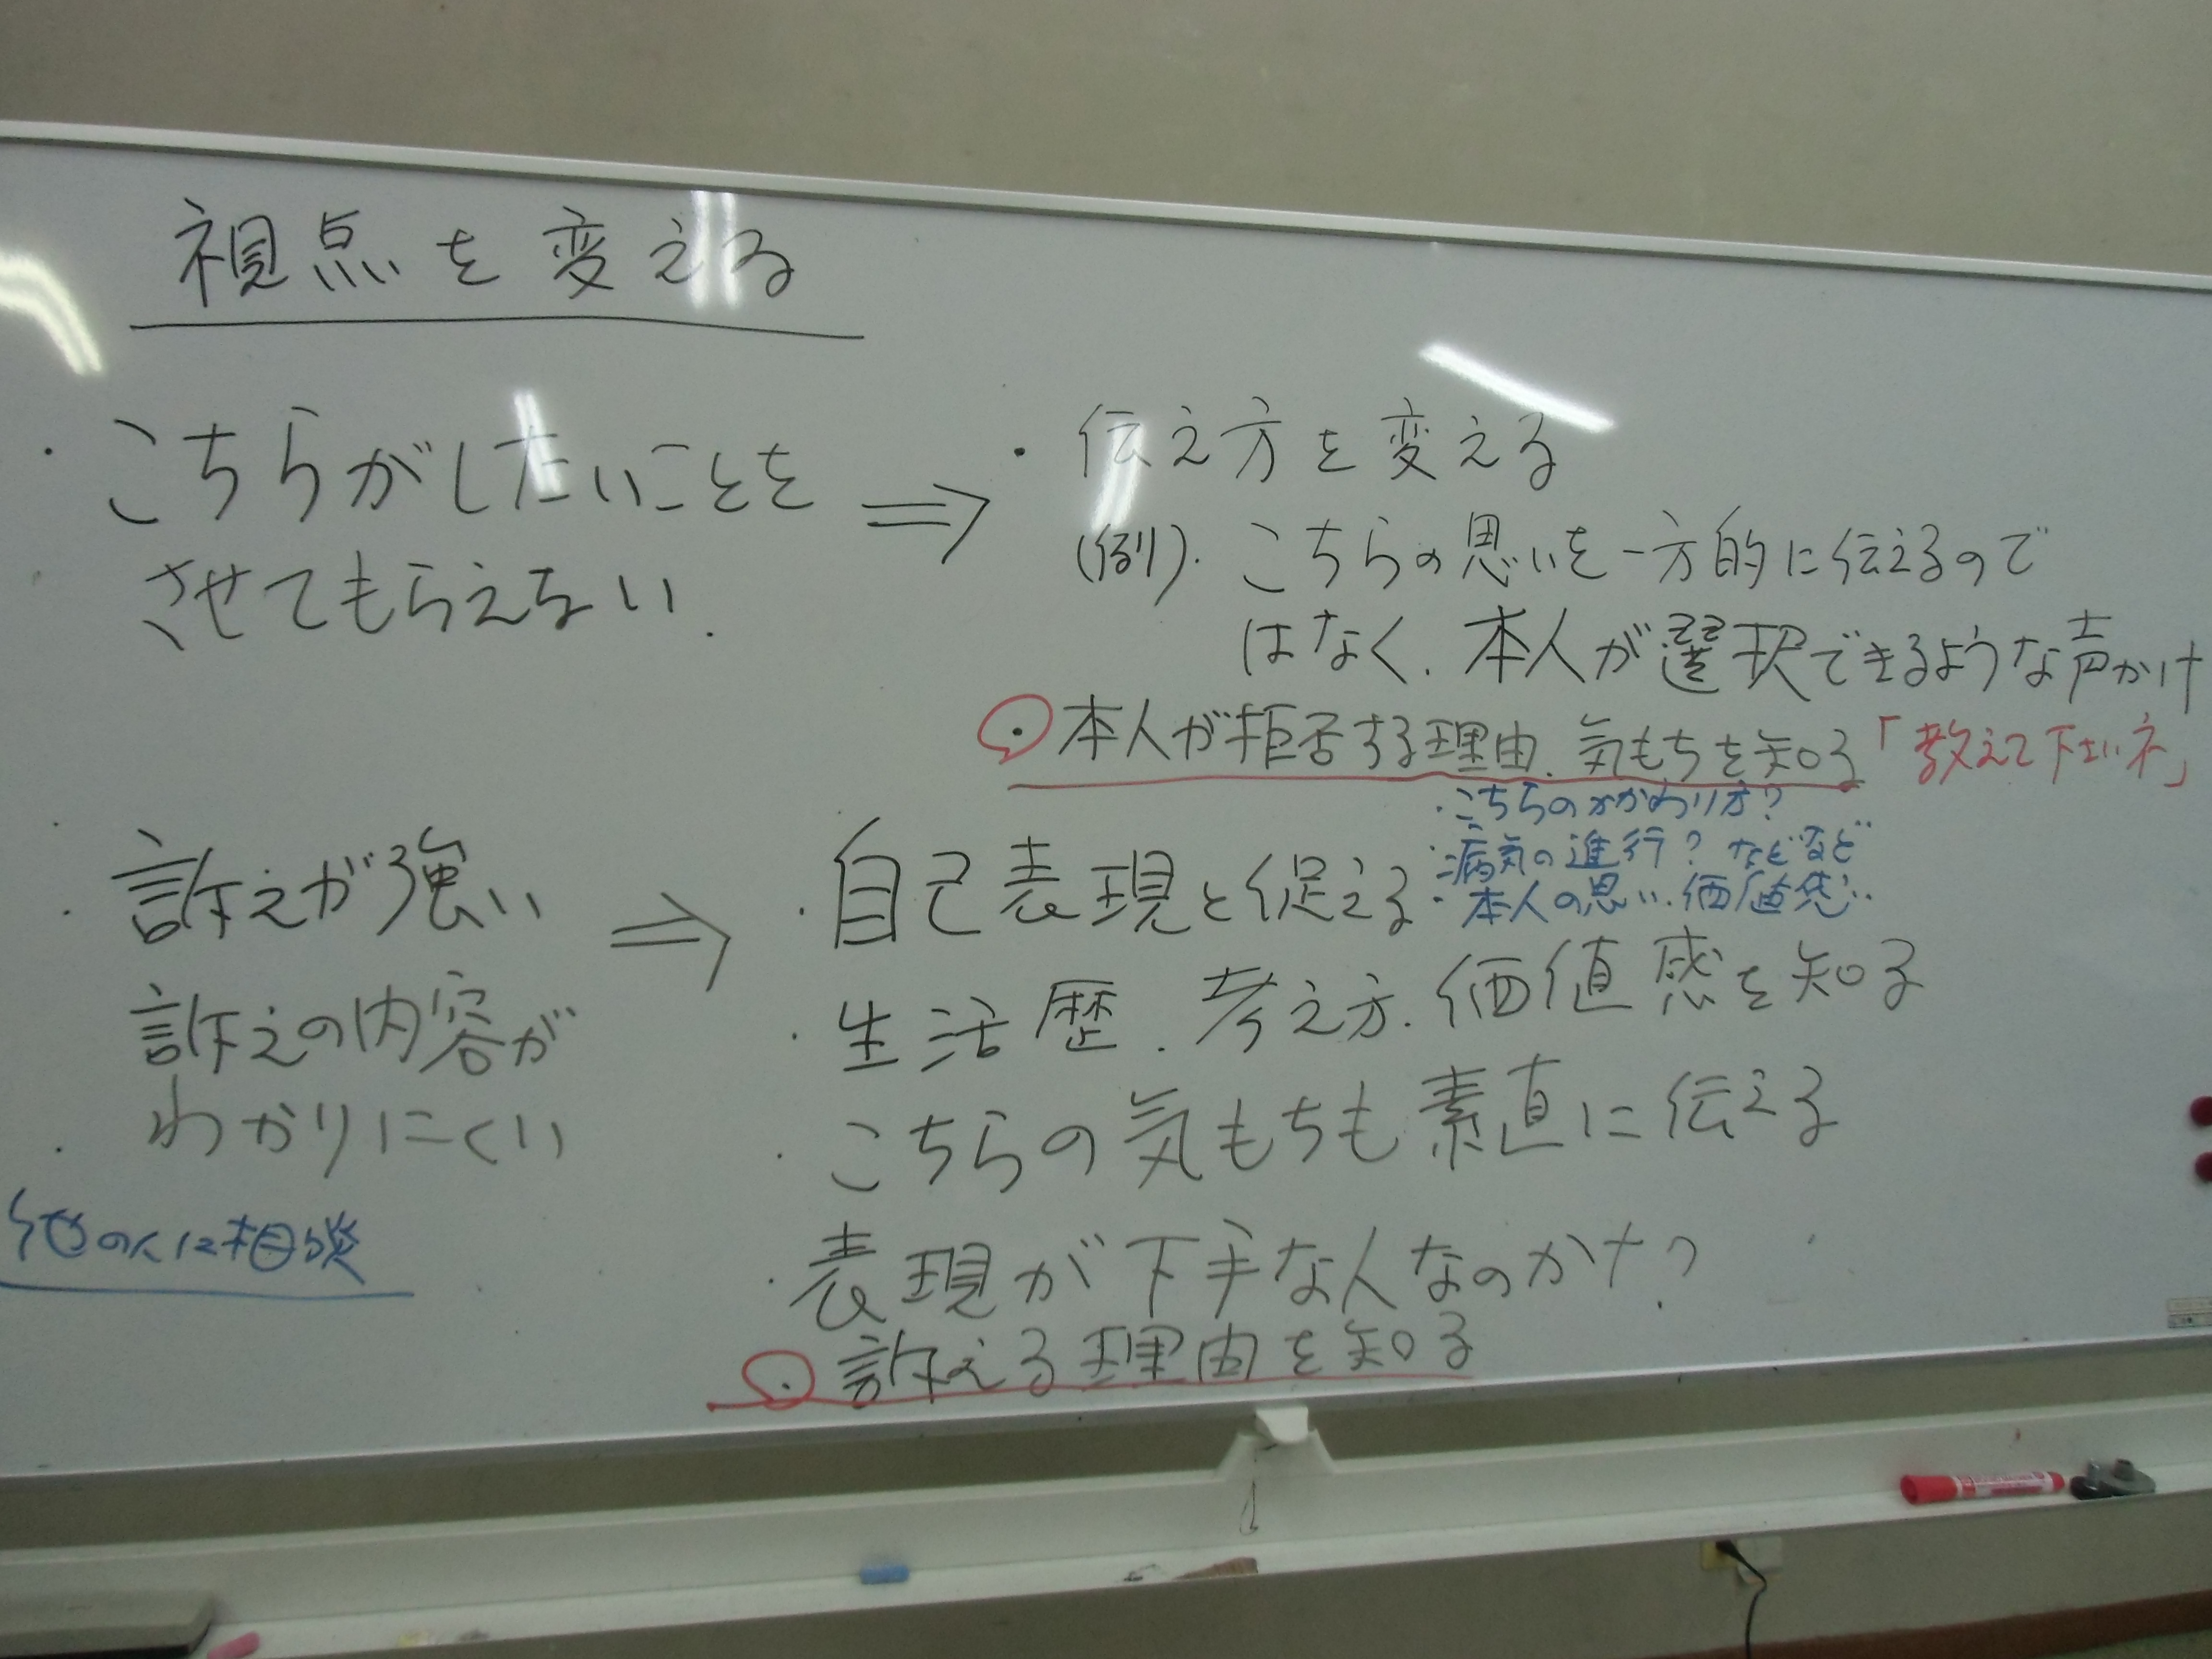 視点を変える
・こちらがしたいことを
させてもらえない.
⇒
・伝え方を変える
(例).こちらの思いを一方的に伝えるので
はなく.本人が選択できるような声かけ
・本人が拒否する理由.気もちを知る「教えて下さいネ」
・こちらのかかわり方?
・病気の進行?などなど
・本人の思い.価値感..
・訴えが強い
訴えの内容が
・わかりにくい
⇒
・自己表現と促える
・生活歴.考え方.価値感を知る
・こちらの気もちも素直に伝える
・表現が下手な人なのかナ?
・訴える理由を知る
他の人に相談